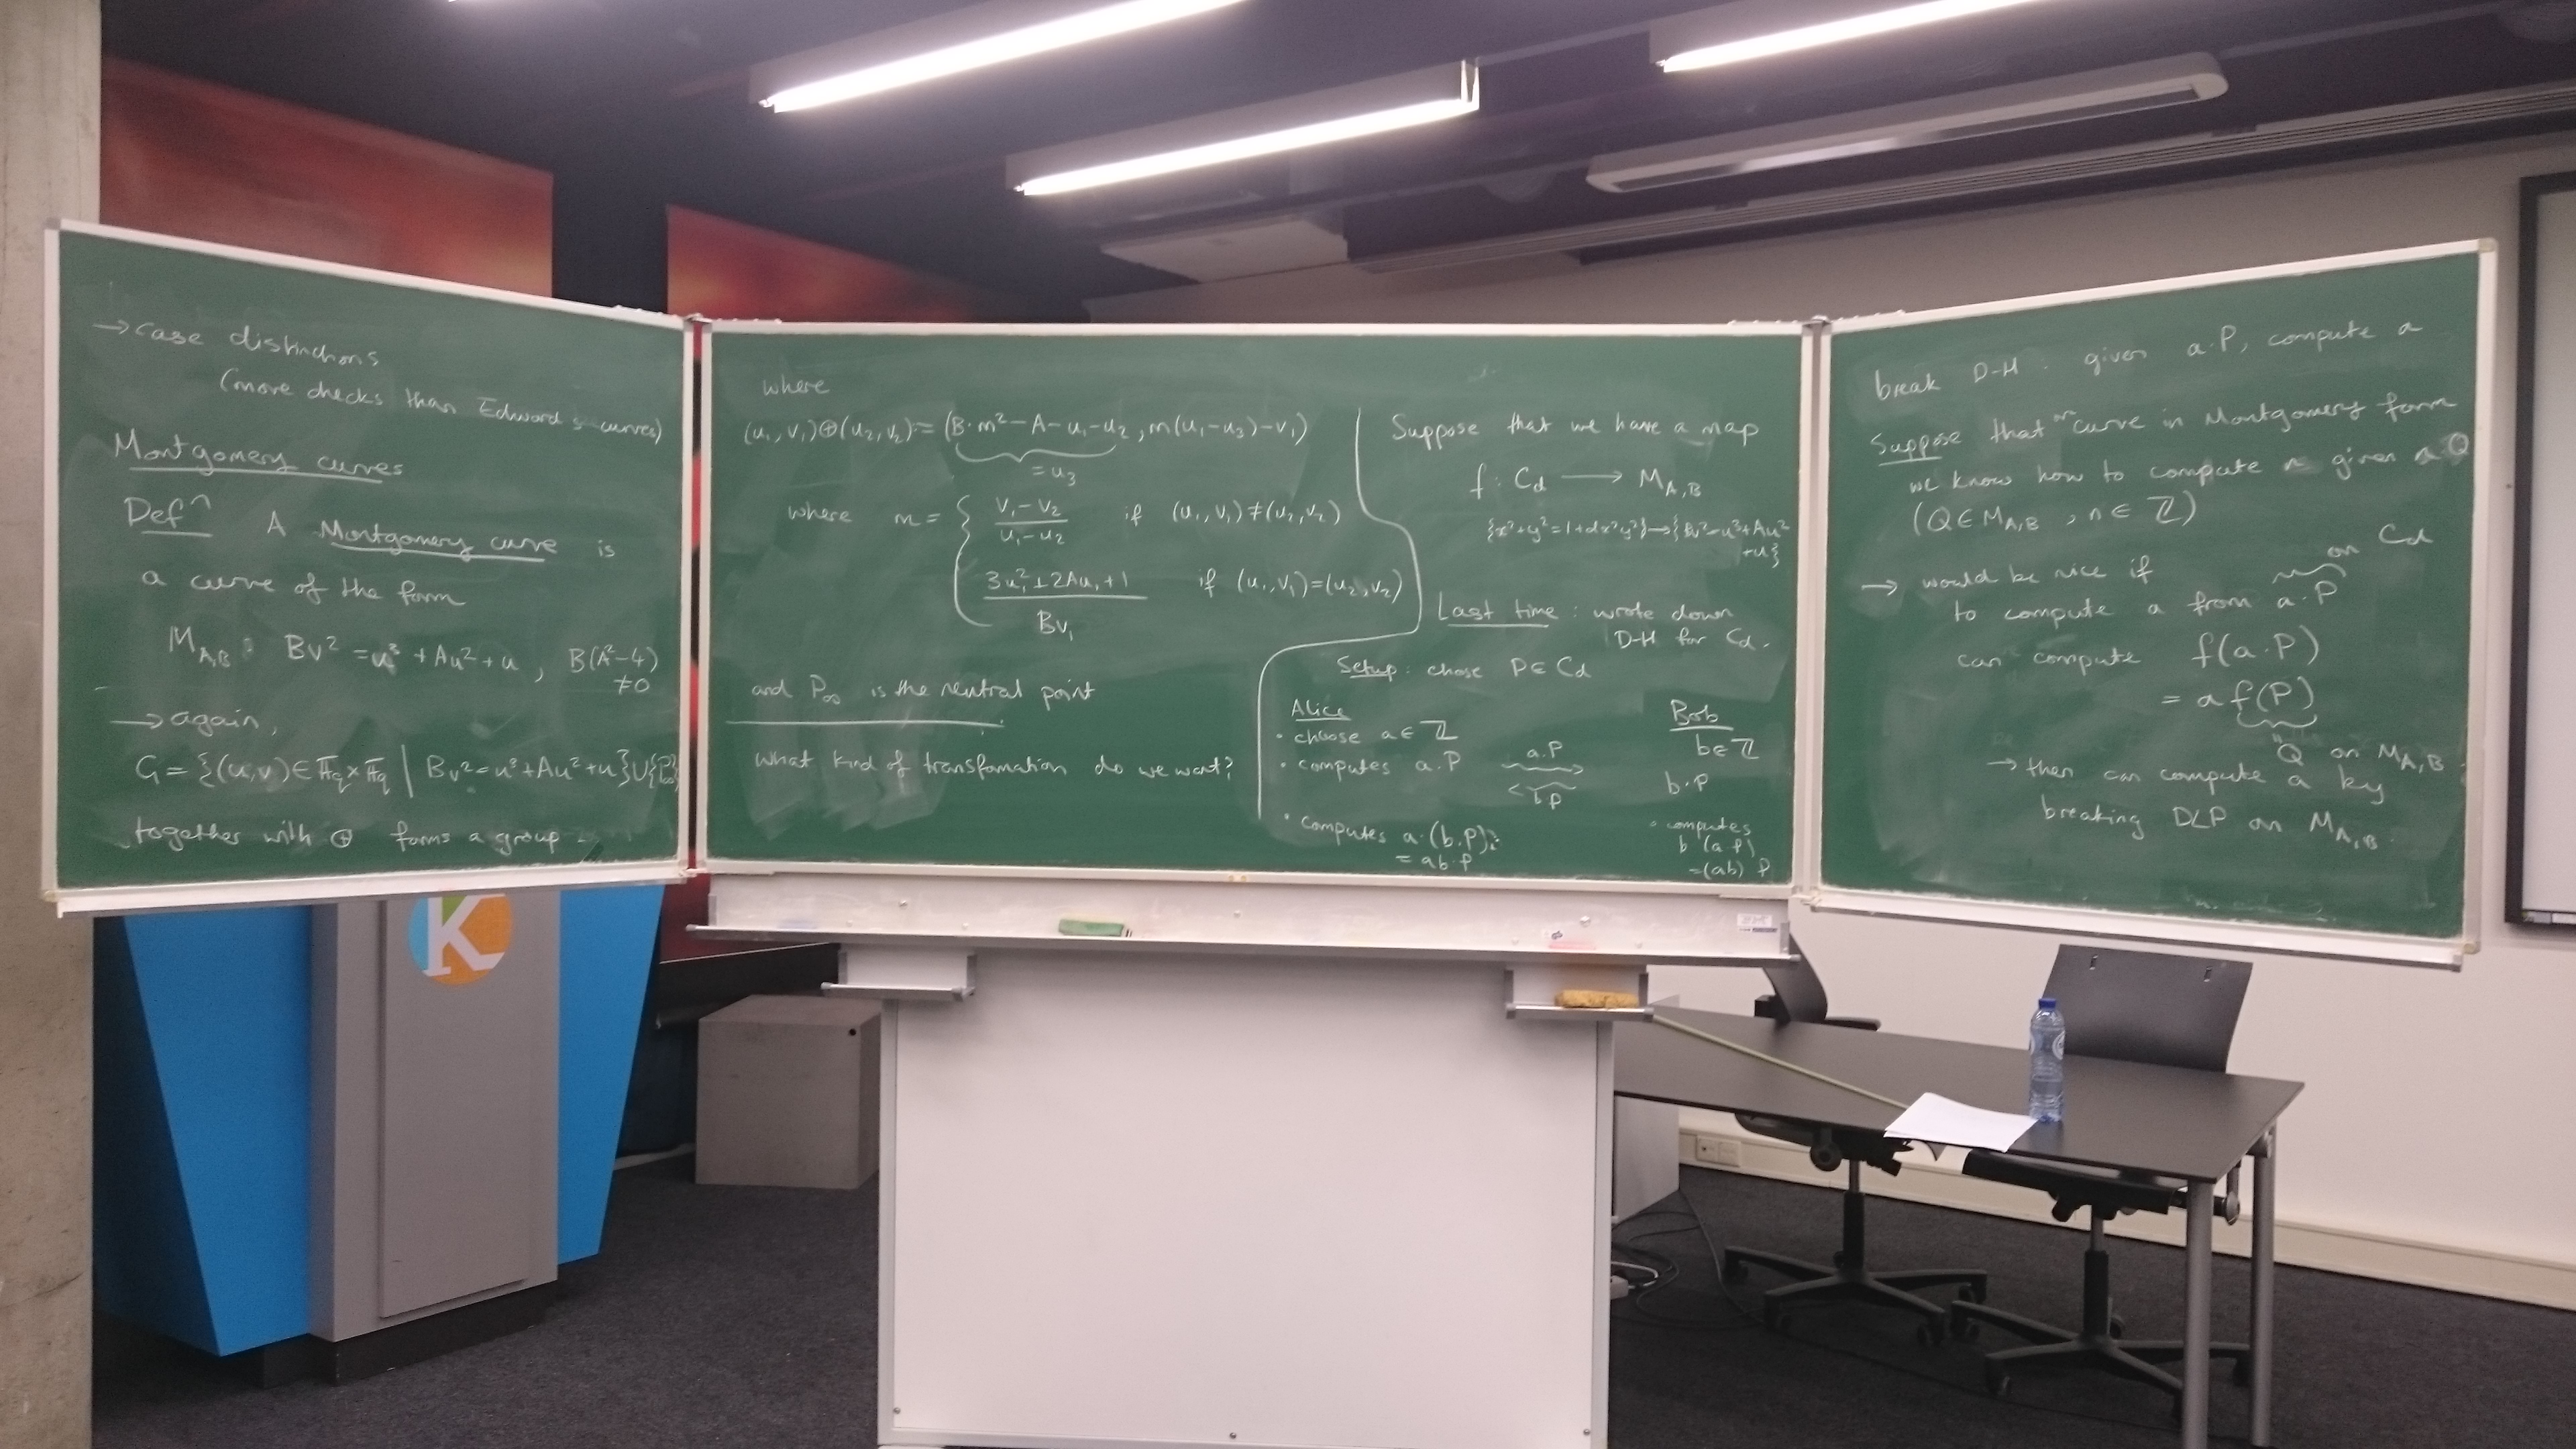 → case distinctions
(more checks than Edwards curves)
Montgomery curves
Defⁿ A Montgomery curve is
a curve of the form
M_{A,B} : Bv² = u³ + Au² + u , B(A²-4) ≠0
→ again,
G = {(u,v) ∈ 𝔽q × 𝔽q | Bv² = u³ + Au² + u} ∪ {P∞}
together with ⊕ forms a group -
where
(u₁, v₁) ⊕ (u₂, v₂) := (B·m² - A - u₁ - u₂ , m(u₁ - u₃) - v₁)
= u₃
where m = { (v₁ - v₂)/(u₁ - u₂) if (u₁, v₁) ≠ (u₂, v₂)
(3u₁² + 2Au₁ + 1)/(Bv₁) if (u₁, v₁) = (u₂, v₂)
and P∞ is the neutral point
What kind of transformation do we want?
Suppose that we have a map
f : Cd → M_{A,B}
{x² + y² = 1 + dx²y²} → {Bv² = u³ + Au²
+ u}
Last time : wrote down
D-H for Cd.
Setup : chose P ∈ Cd
Alice Bob
• choose a ∈ ℤ b ∈ ℤ
• computes a·P a.P → b·P
← bP
• computes a·(b.P) • computes
= ab·P b (a P)
=(ab) P
break D-H : given a·P, compute a
Suppose that on curve in Montgomery form
we know how to compute n given n Q
(Q ∈ M_{A,B} , n ∈ ℤ)
→ would be nice if on Cd
to compute a from a·P
can compute f(a·P)
= a f(P)
" Q on M_{A,B}
→ then can compute a by
breaking DLP on M_{A,B}.
K